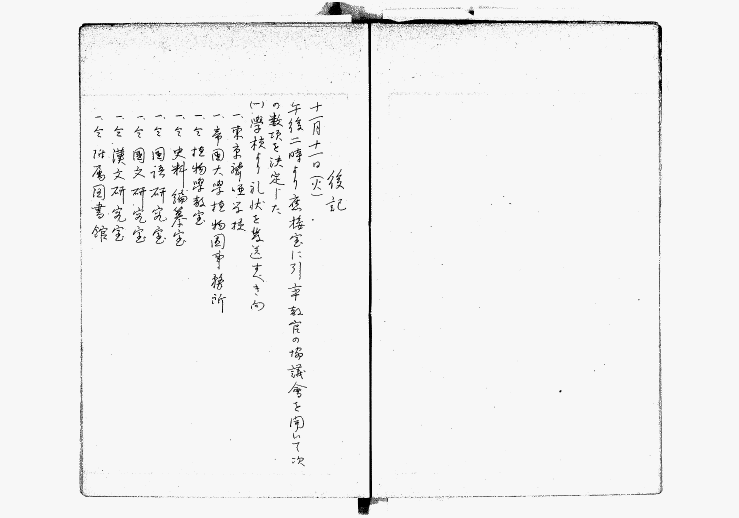 後記
十一月十一日(火).
午後二時より應接室に引率教官の協議會を開いて次
の数項を決定した
(一)學校より礼状を発送すべき向
一、東京聾唖学校
一、帝国大學植物園事務所
一、仝 植物學教室
一、仝 史料編纂室
一、仝 國語研究室
一、仝 國文研究室
一、仝 漢文研究室
一、仝 附属図書館